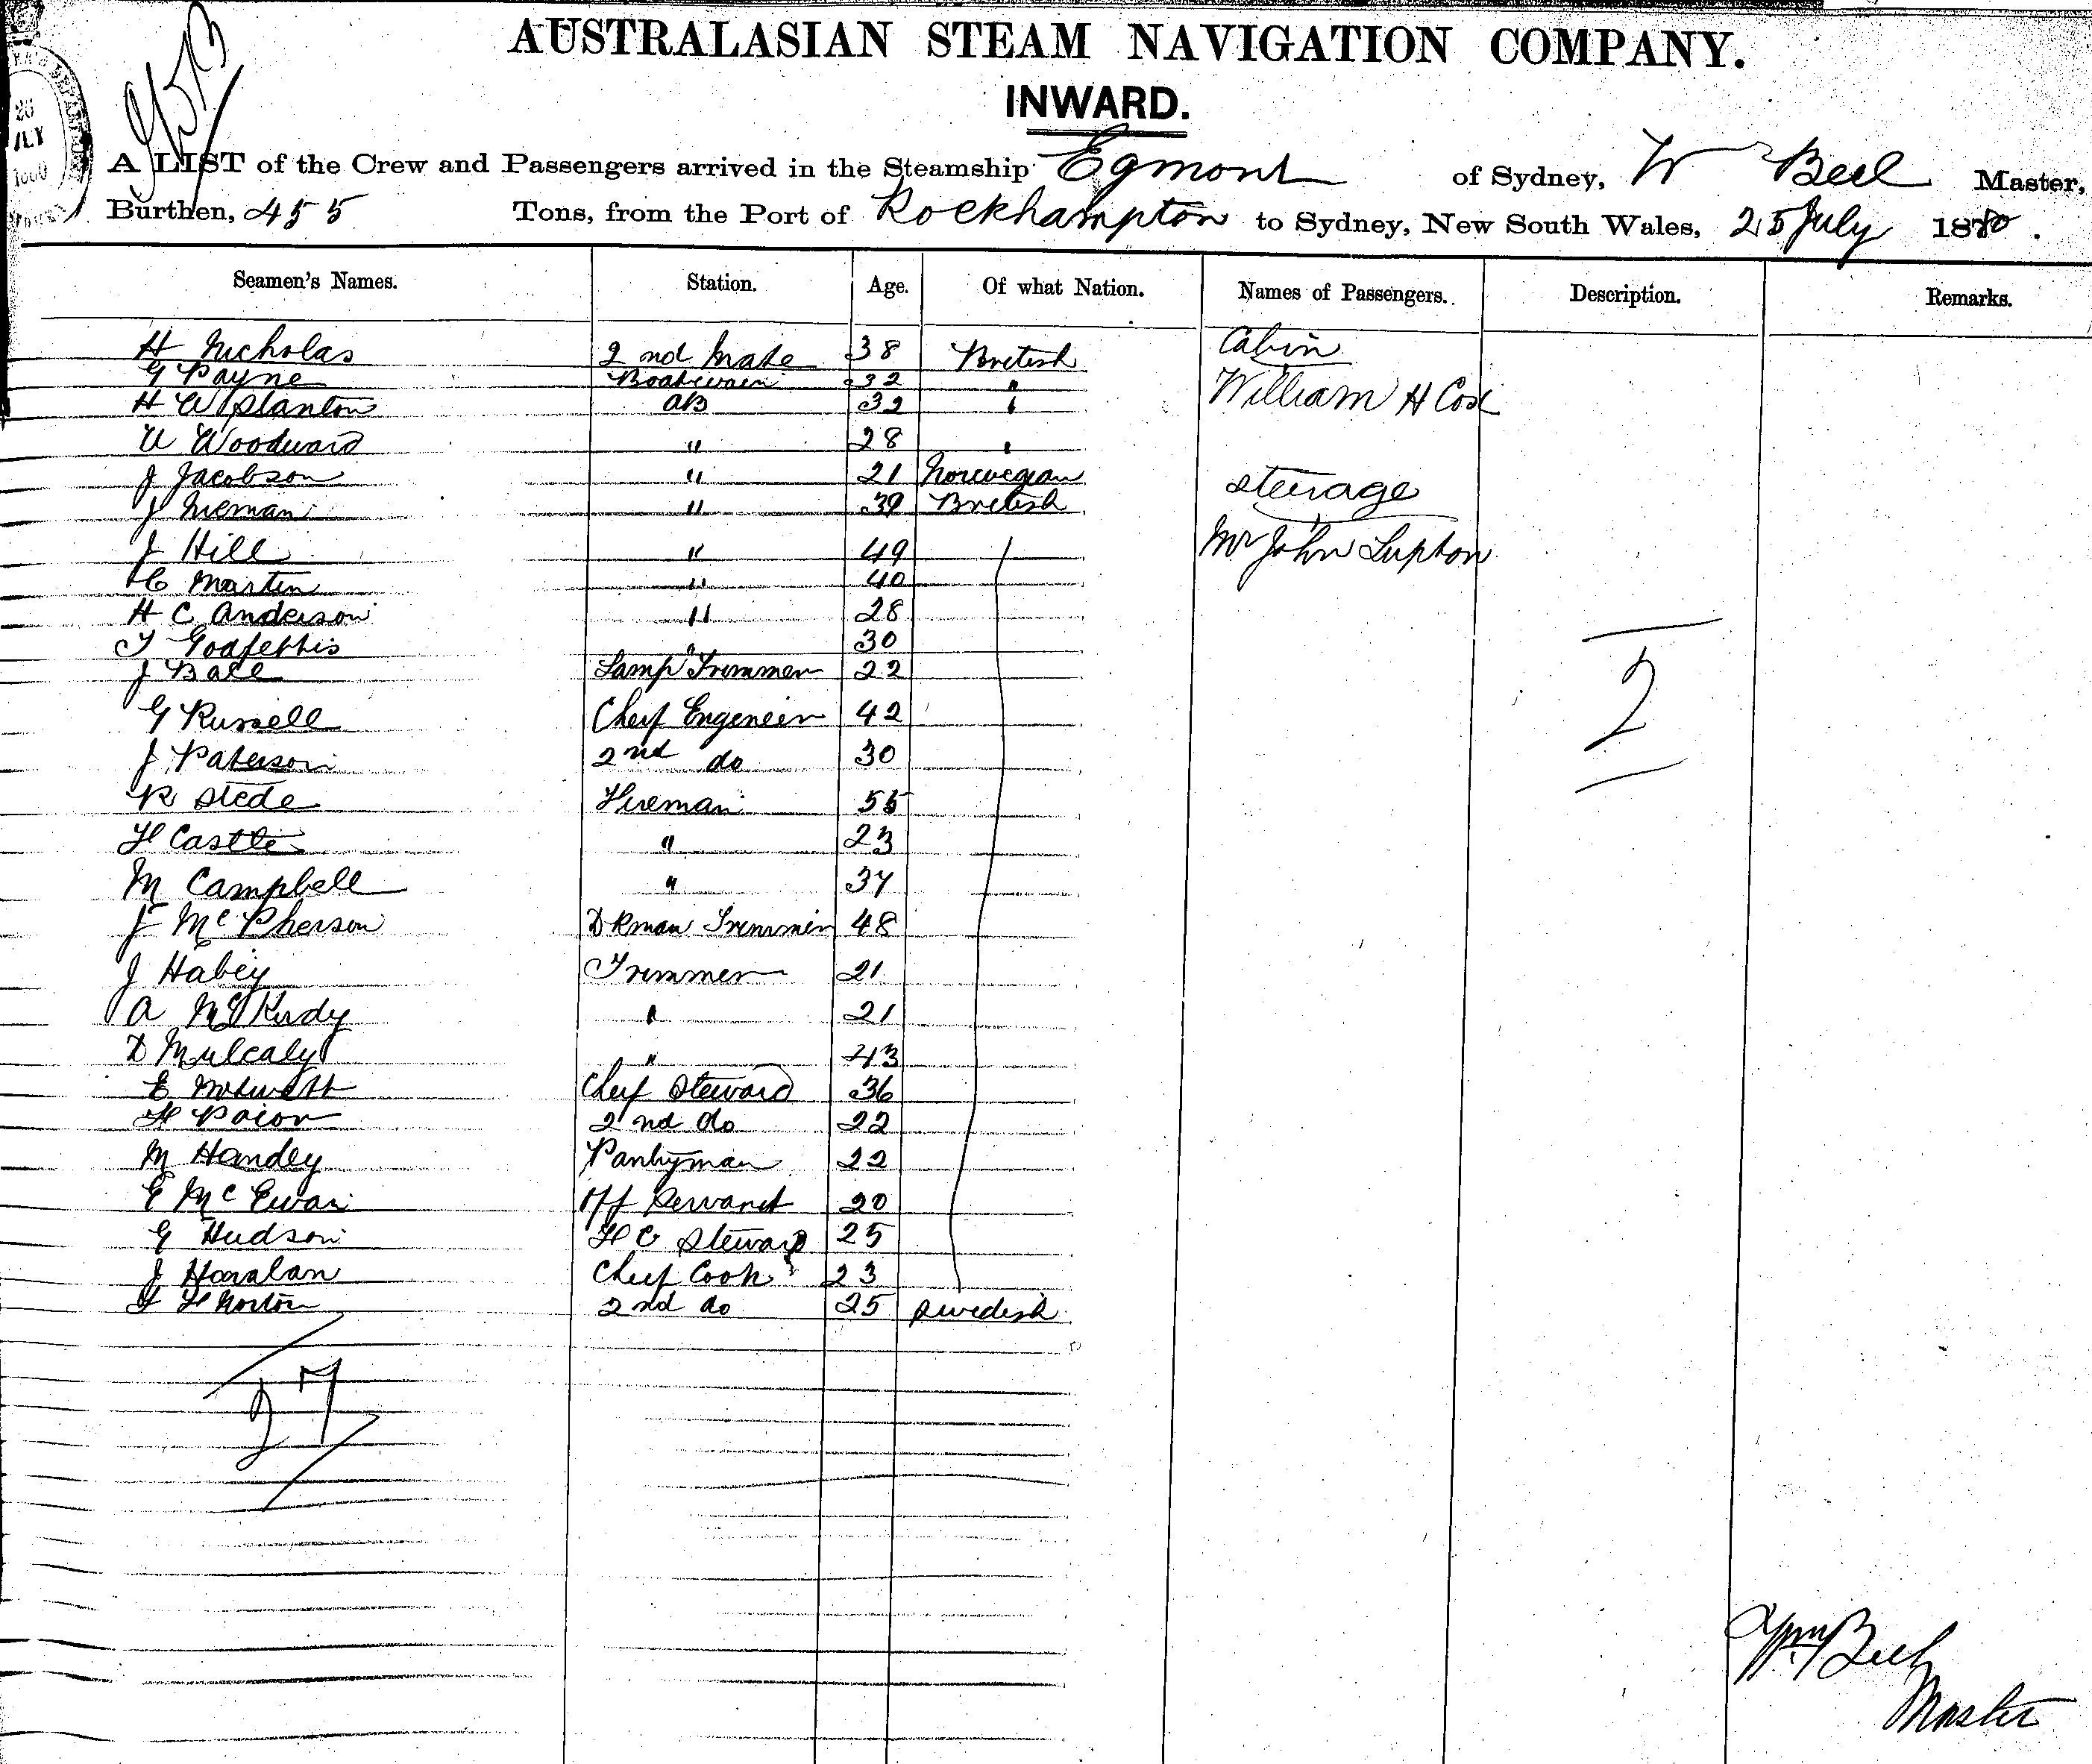 AUSTRALASIAN STEAM NAVIGATION COMPANY.
INWARD.
A LIST of the Crew and Passengers arrived in the Steamship Egmont of Sydney, W Beel Master,
Burthen, 455 Tons, from the Port of Rockhampton to Sydney, New South Wales, 25 July 1880.
Seamen's Names. Station. Age. Of what Nation. Names of Passengers. Description. Remarks.
H Nicholas 2nd Mate 38 British Cabin
G Payne Boatswain 32 "
H W Stanton AB 32 " William H Cox
W Woodward " 28 "
J Jacobson " 21 Norwegian steerage
J Nieman " 39 British
J Hill " 49 Mr John Lupton
C Martin " 40
H C Anderson " 28
T " 30
J Ball Lamp Trimmer 22
G Russell Cheif Engeneer 42 2
J Paterson 2nd do 30
R Stede Fireman 55
H Castle " 23
M Campbell " 37
J McPherson DKman Trimmer 48
J Habey Trimmer 21
A " 21
D Mulcaly " 43
E Cheif Steward 36
H 2nd do 22
M Handey Pantryman 22
E McEwan Off Servant 20
G Hudson F C Steward 25
J Hanlan Cheif Cook 23
F H Norton 2nd do 25 Swedish
27
Wm Beel
Master